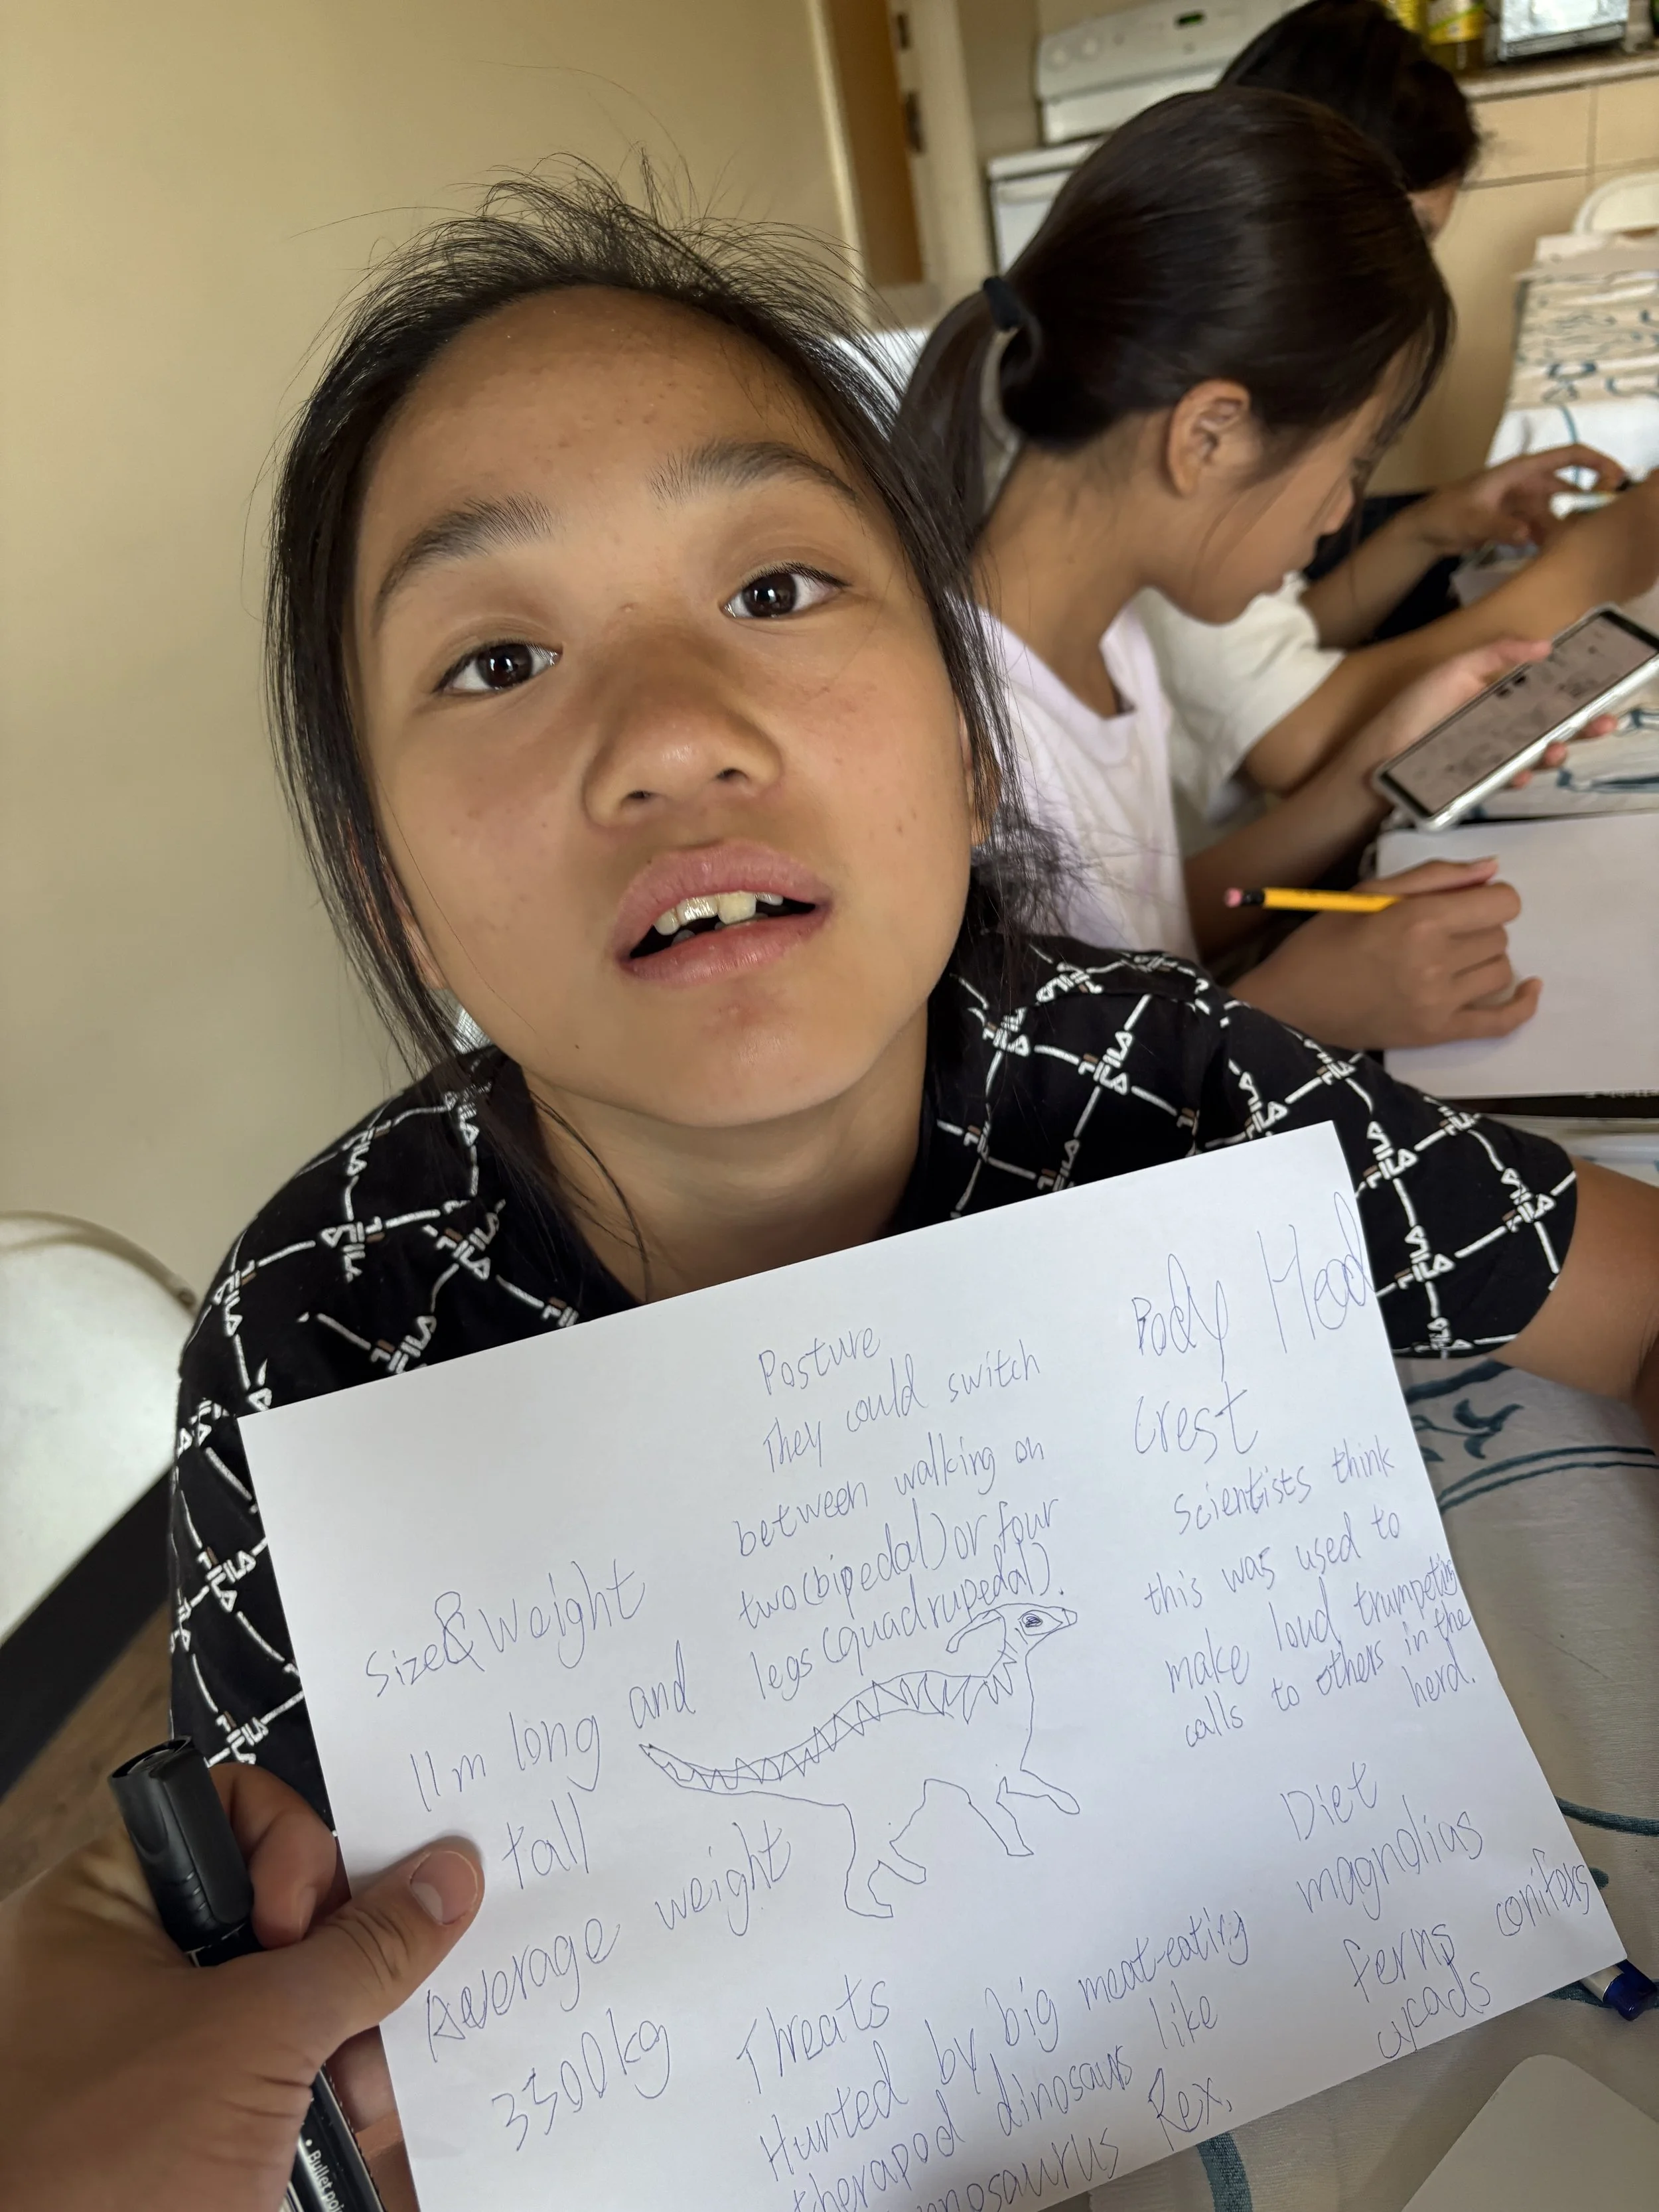 Posture
They could switch
between walking on
two(bipedal) or four
legs(quadrupedal).
Body Head
Crest
Scientists think
this was used to
make loud trumpeting
calls to others in the
herd.
Size & Weight
11m long and
tall
Average weight
3500kg
Threats
Hunted by big meat-eating
therapod dinosaurs like
nnosaurus Rex.
Diet
magnolius
ferns conifers
cycads
FILA
• Bullet poi